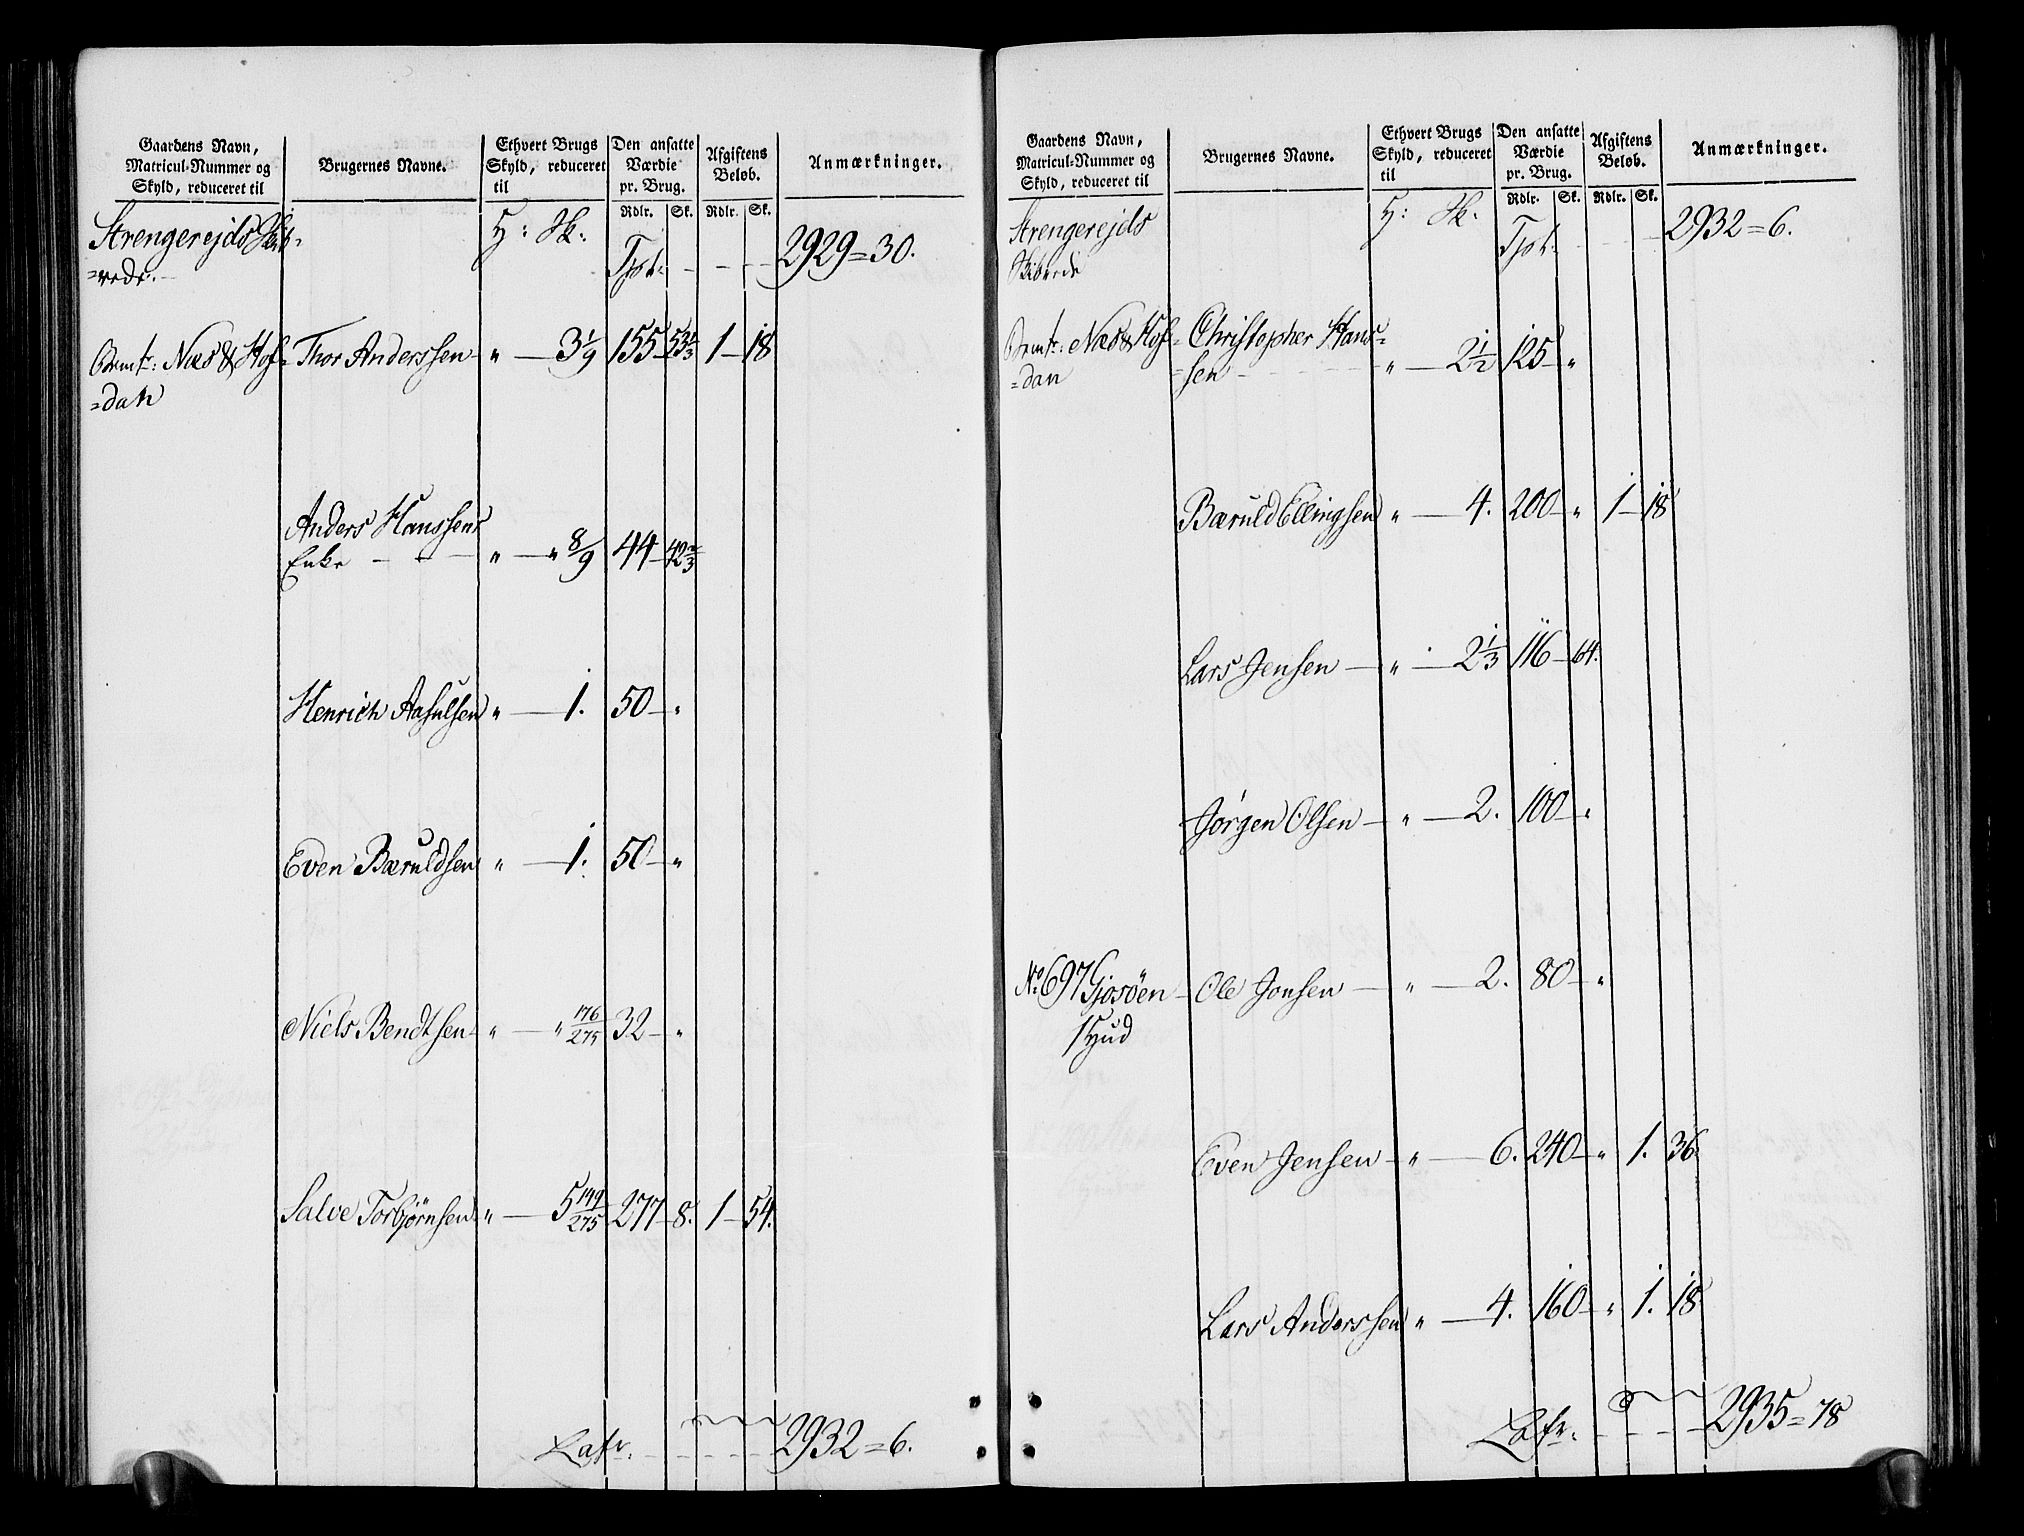 Gaardens Navn,
Matricul-Nummer og
Skyld, reduceret til
Brugernes Navne.
Ethvert Brugs
Skyld, reduceret
til
Den ansatte
Værdie
pr. Brug.
Afgiftens
Beløb.
Anmærkninger.
Rdlr. Sk. Rdlr. Sk.
Strengerejds Skib=
=rede.
H: Sk:
Tpt: - - - 2929=30.
Bemte: Næs & Hof= Thor Anderssen " — 3 1/9 155 — 53 1/3 1 — 18
=dan
Anders Hanssens
Enke - - " — " 8/9 44 — 42 2/3
Henrich Aasulsen " — 1. 50 — "
Even Bæruldsen " — 1. 50 — "
Niels Bendtsen " — " 176/275 32 — "
Salve Torbjørnsen " — 5 149/275 277 — 8. 1 — 54.
Lafr. - - - 2932=6.
Gaardens Navn,
Matricul-Nummer og
Skyld, reduceret til
Brugernes Navne.
Ethvert Brugs
Skyld, reduceret
til
Den ansatte
Værdie
pr. Brug.
Afgiftens
Beløb.
Anmærkninger.
Rdlr. Sk. Rdlr. Sk.
Strengerejds
Skibrede
H: Sk:
Tpt: - - - 2932=6.
Bemte: Næs & Hof= Christopher Hans=
=dan =sen - - - " — 2 1/2 125 — "
Bæruld Ellingsen " — 4. 200 — " 1 — 18
Lars Jensen — " — 2 1/3 116 — 64.
Jørgen Olsen — " — 2. 100 — "
No. 697 Gjosöen — Ole Jonsen — " — 2. 80 — "
1 Hud
Even Jensen — " — 6. 240 — " 1. 36
Lars Anderssen " — 4. 160 — " 1. 18
Lafr. - - - 2935=78